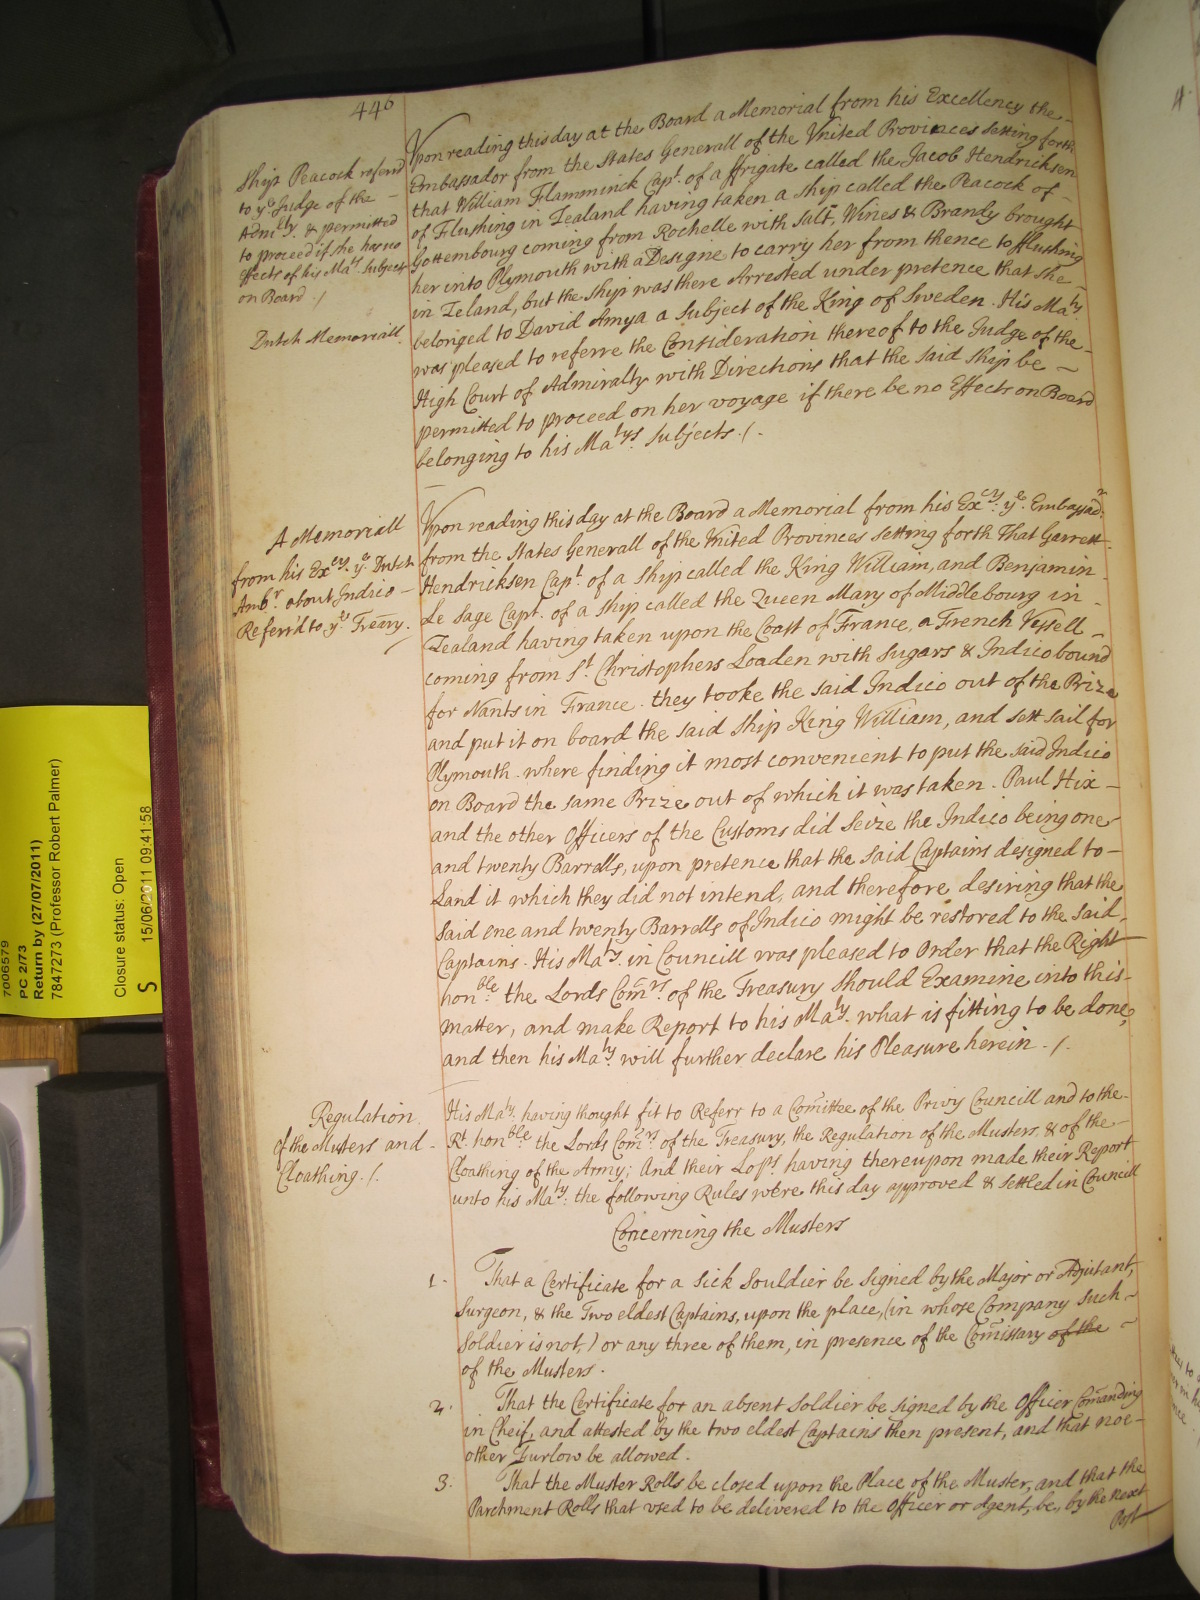 446
Ship Peacock referrd
to ye Judge of the
Admlty. & permitted
to proceed if she has no
effects of his Matys Subjects
on Board ./
Dutch Memoriall.
Vpon reading this day at the Board a Memorial from his Excellency the
Embassador from the States Generall of the Vnited Provinces setting forth
that William Flamminck Capt. of a ffrigate called the Jacob Hendricksen
of Flushing in Zealand having taken a ship called the Peacock of
Gottembourg coming from Rochelle with Salt, Wines & Brandy brought
her into Plymouth with a Designe to carry her from thence to fflushing
in Zeland, but the ship was there Arrested under pretence that she
belonged to David Amya a Subject of the King of Sweden. His Maty.
was pleased to referre the Consideration thereof to the Judge of the
High Court of Admiralty with Directions that the said ship be
permitted to proceed on her voyage if there be no Effects on Board
belonging to his Matys. Subjects ./.
A Memoriall
from his Excy. ye Dutch
Ambr. about Indico
Referr'd to ye Treãry.
Vpon reading this day at the Board a Memorial from his Excy. ye Embassadr.
from the States Generall of the Vnited Provinces setting forth That Garrett
Hendricksen Capt. of a ship called the King William, and Benjamin
Le Sage Capt. of a ship called the Queen Mary of Middlebourg in
Zealand having taken upon the Coast of France, a French Vessell
coming from St. Christophers Loaden with Sugars & Indico bound
for Nants in France. they tooke the said Indico out of the Prize
and put it on board the said ship King William, and sett sail for
Plymouth. where finding it most convenient to put the said Indico
on Board the same Prize out of which it was taken. Paul Hix
and the other Officers of the Customs did Seize the Indico being one
and twenty Barrells, upon pretence that the said Captains designed to
Land it which they did not intend, and therefore desiring that the
said one and twenty Barrells of Indico might be restored to the said
Captains. His Maty. in Councill was pleased to Order that the Right
honble. the Lords Com̃rs. of the Treasury should Examine into this
matter, and make Report to his Maty. what is fitting to be done,
and then his Maty. will further declare his Pleasure herein ./.
Regulation
of the Musters and
Cloathing ./.
His Maty. having thought fit to Referr to a Com̃ittee of the Privy Councill and to the
Rt. honble the Lords Com̃rs. of the Treasury, the Regulation of the Musters & of the
Cloathing of the Army; And their Lops. having thereupon made their Report
unto his Maty. the following Rules were this day approved & settled in Councill
Concerning the Musters
1. That a Certificate for a sick Souldier be signed by the Major or Adjutant,
Surgeon, & the Two eldest Captains, upon the place, (in whose Company such
Soldier is not,) or any three of them, in presence of the Com̃issary of the
of the Musters.
2. That the Certificate for an absent Soldier be signed by the Officer Com̃anding
in Cheif, and attested by the two eldest Captains then present, and that noe
other Furlow be allowed.
3. That the Muster Rolls be closed upon the Place of the Muster, and that the
Parchment Rolls that used to be delivered to the Officer or Agent, be, by the next
Post
7006579
PC 2/73
Return by (27/07/2011)
7847273 (Professor Robert Palmer)
Closure status: Open
S 15/06/2011 09:41:58